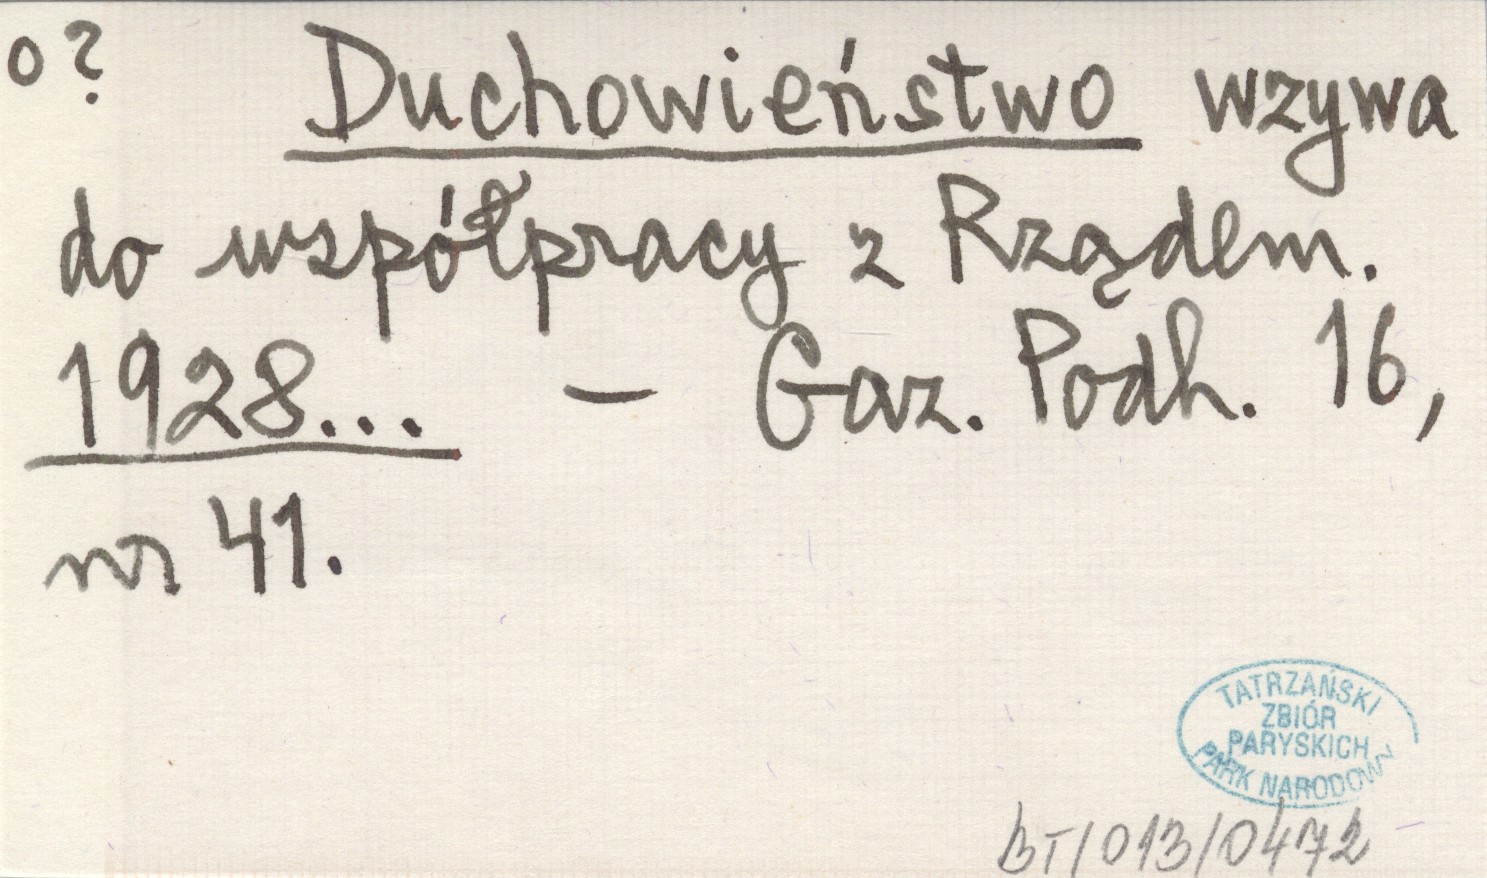 o?
Duchowieństwo wzywa
do współpracy z Rządem.
1928... – Gaz. Podh. 16,
nr 41.
TATRZAŃSKI
ZBIÓR
PARYSKICH
PARK NARODOWY
BT/013/0472